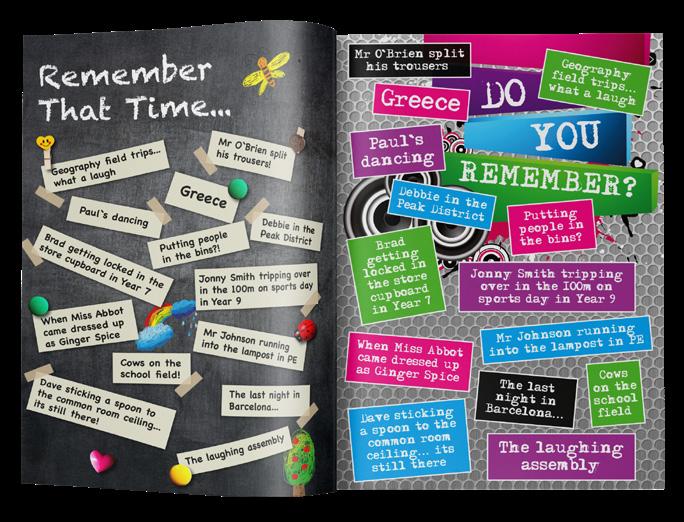 Remember
That Time...
Geography field trips...
what a laugh
Mr O'Brien split
his trousers!
Greece
Paul's dancing
Debbie in the
Peak District
Putting people
in the bins?!
Brad getting locked in the
store cupboard in Year 7
Jonny Smith tripping over
in the 100m on sports day
in Year 9
When Miss Abbot
came dressed up
as Ginger Spice
Mr Johnson running
into the lampost in PE
Cows on the
school field!
Dave sticking a spoon to
the common room ceiling...
its still there!
The last night in
Barcelona...
The laughing assembly
Mr O'Brien split
his trousers
Geography
field trips...
what a laugh
Greece
DO
YOU
REMEMBER?
Paul's
dancing
Debbie in the
Peak District
Putting
people in
the bins?
Brad
getting
locked in
the store
cupboard
in Year 7
Jonny Smith tripping
over in the 100m on
sports day in Year 9
When Miss Abbot
came dressed up
as Ginger Spice
Mr Johnson running
into the lampost in PE
The last
night in
Barcelona...
Cows
on the
school
field
Dave sticking
a spoon to the
common room
ceiling... its
still there
The laughing
assembly